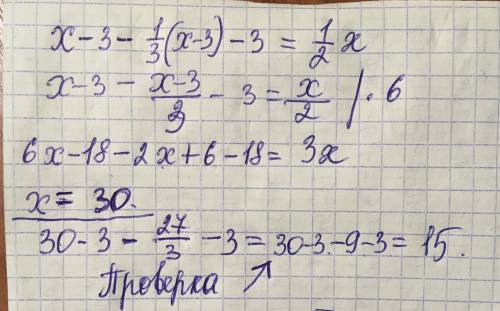 x - 3 - 1/3 (x-3) - 3 = 1/2 x
x - 3 - (x-3)/3 - 3 = x/2 / · 6
6x - 18 - 2x + 6 - 18 = 3x
x = 30.
30 - 3 - 27/3 - 3 = 30-3-9-3 = 15.
Проверка ↗